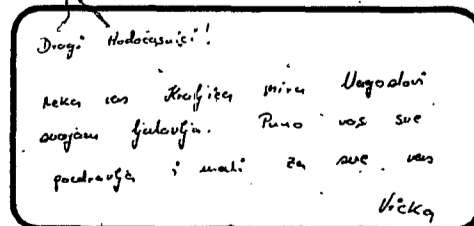 Dragi Hodočasnici!
neka vas Kraljica mira blagoslovi
svojom ljubavlju. Puno vas sve
pozdravlja i moli za sve vas
Vicka